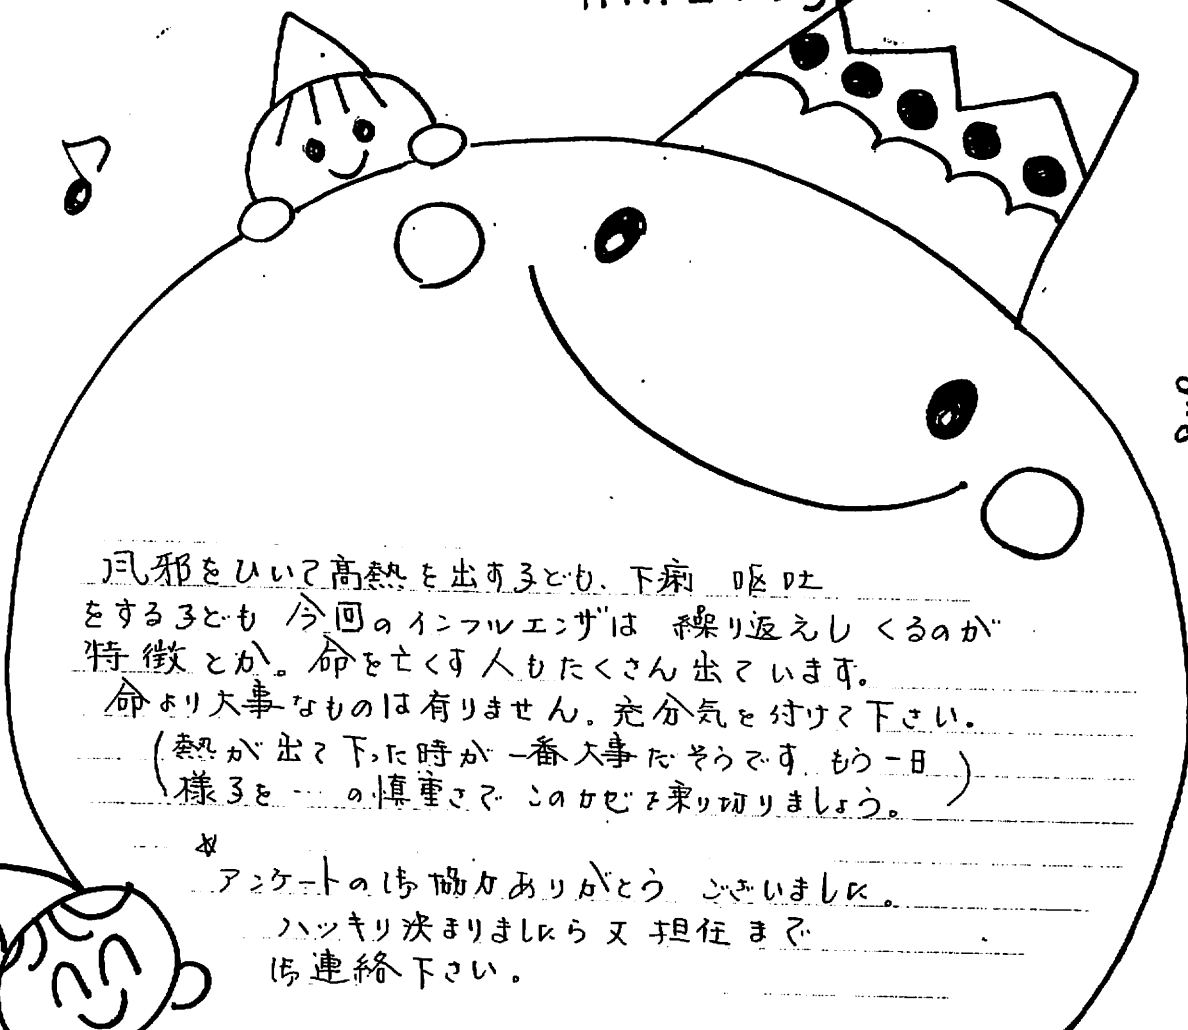 風邪をひいて高熱を出す子ども、下痢 嘔吐
をする子ども 今回のインフルエンザは 繰り返えし くるのが
特徴とか。命を亡くす人もたくさん出ています。
命より大事なものは有りません。充分気を付けて下さい。
(熱が出て下った時が一番大事だそうです もう一日
様子を…の慎重さで このカゼを乗り切りましょう。)
☆
アンケートの御協力ありがとう ございました。
ハッキリ決まりましたら又担任まで
御連絡下さい。